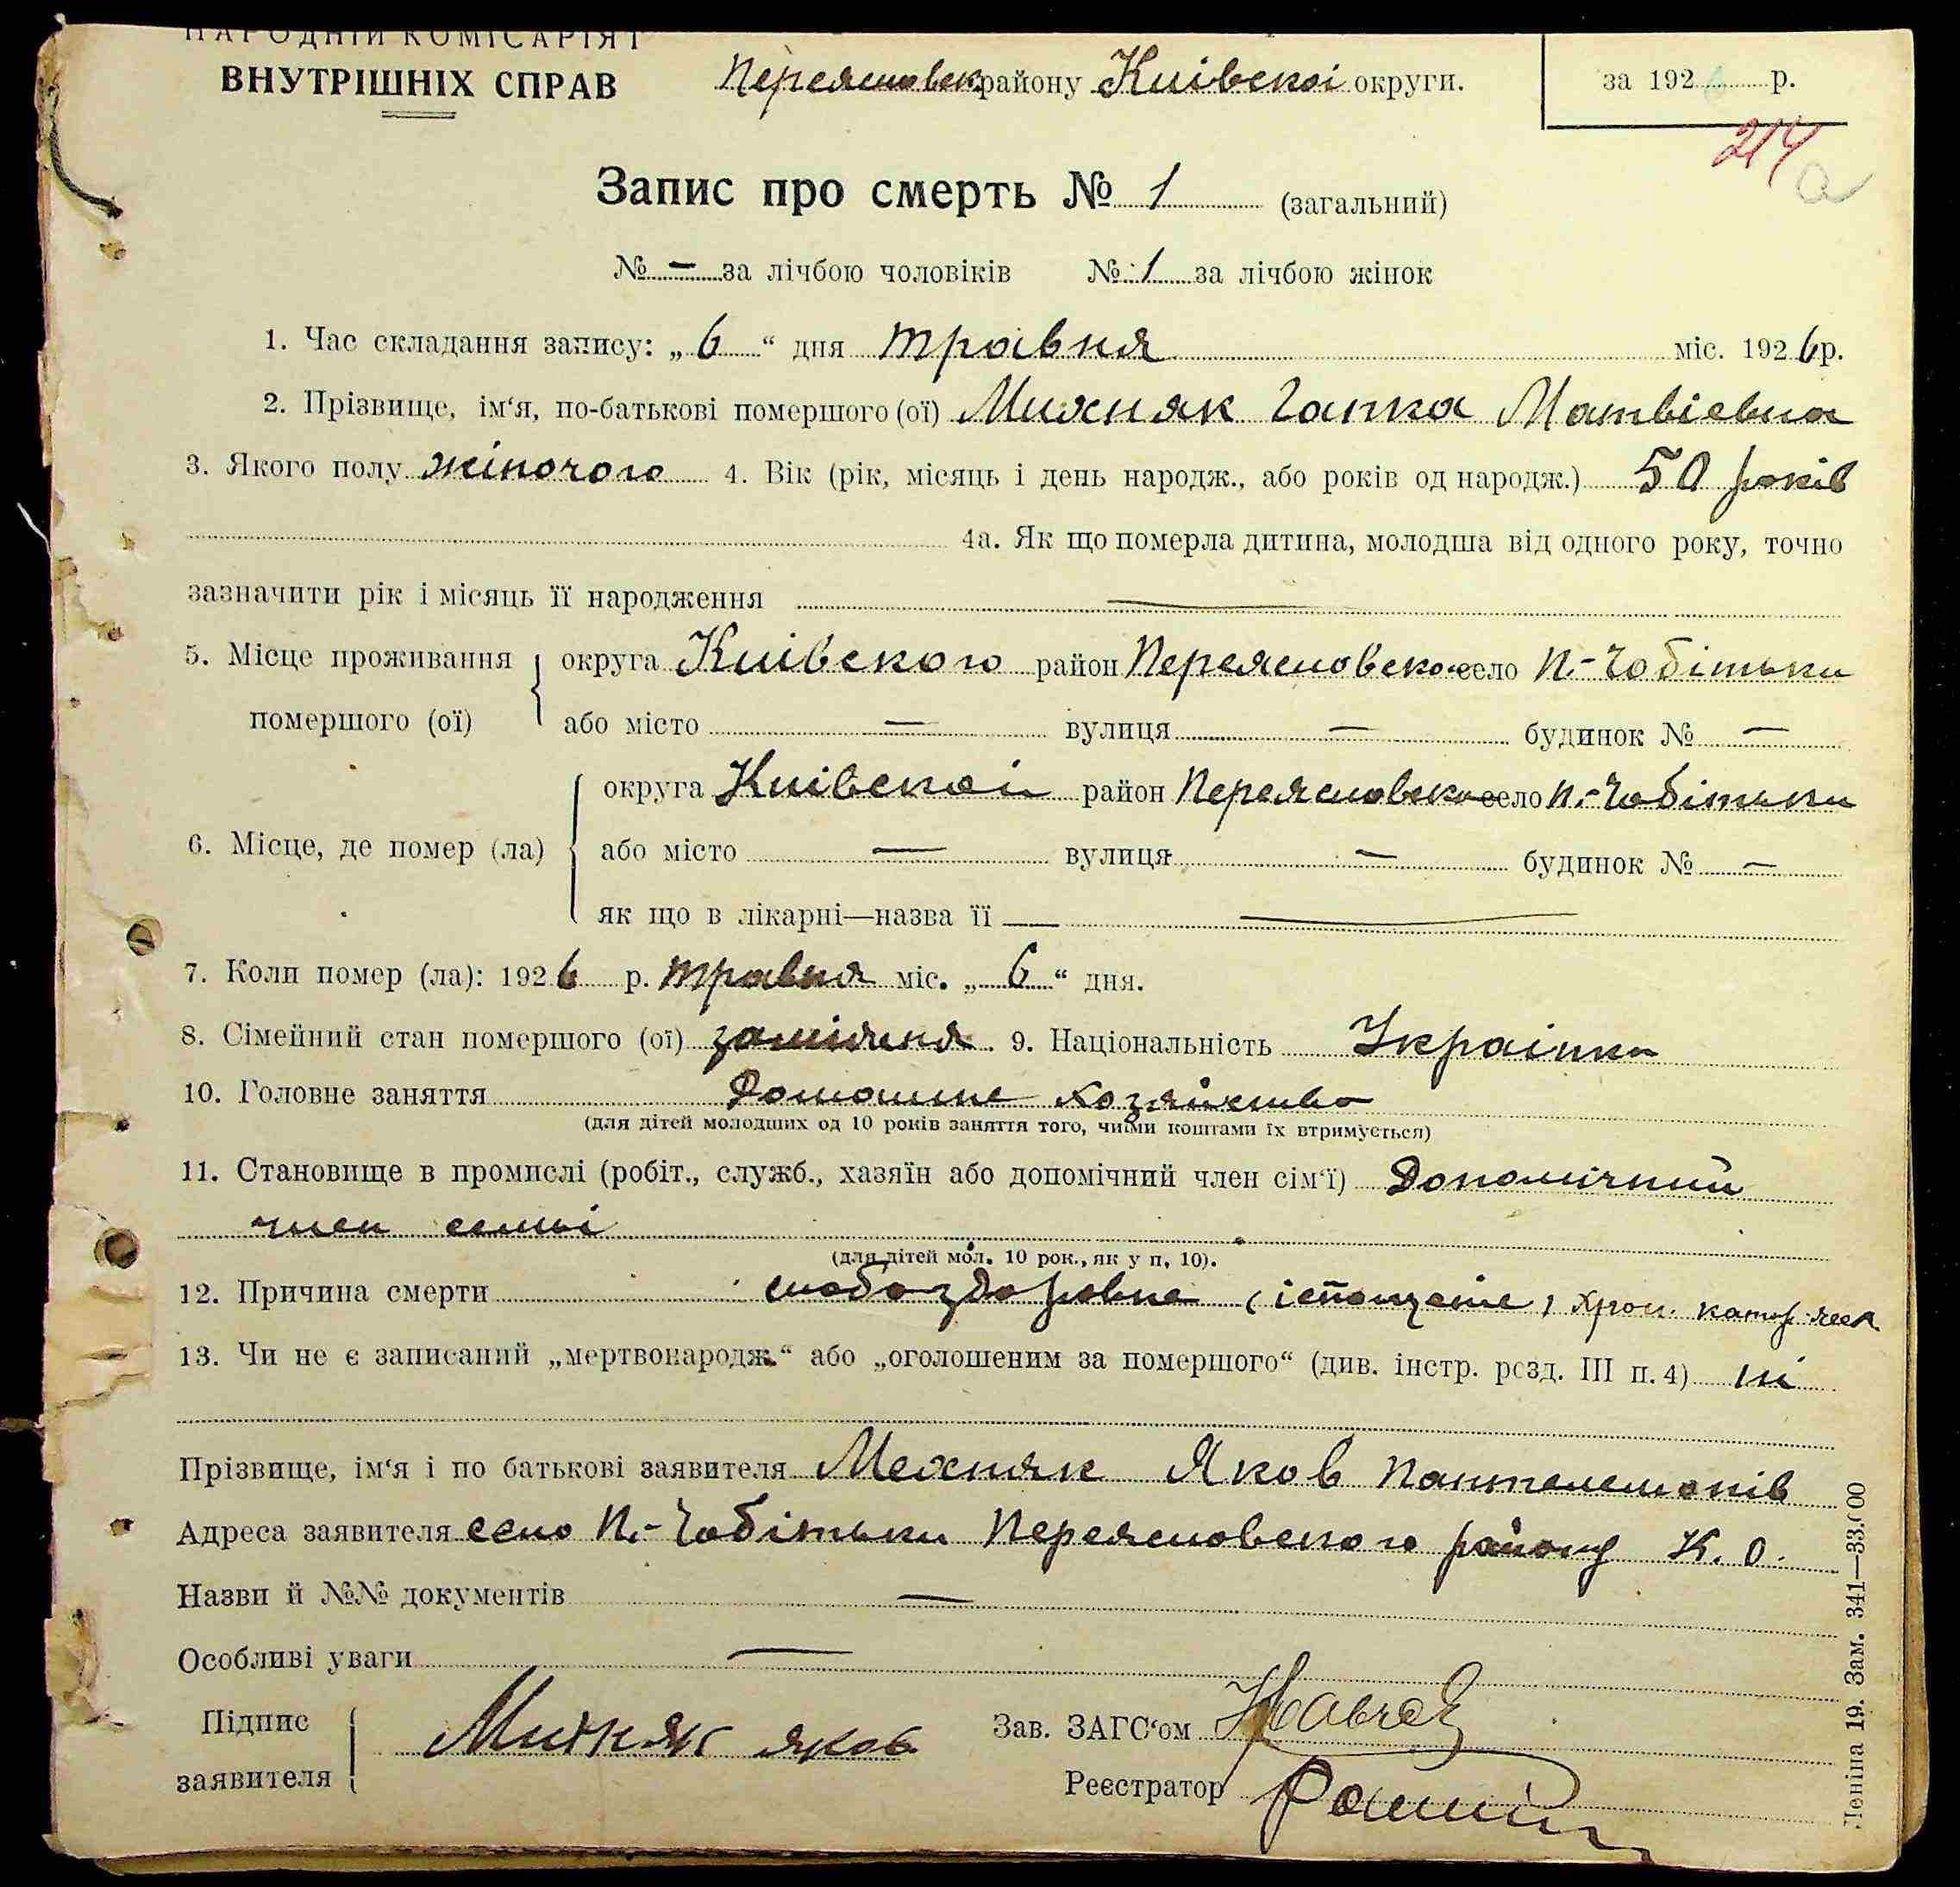 НАРОДНІЙ КОМІСАРІЯТ
ВНУТРІШНІХ СПРАВ
Переясловск району Київскоі округи.
за 192 р.
214
а
Запис про смерть № 1 (загальний)
№ — за лічбою чоловіків № 1 за лічбою жінок
1. Час складання запису: „ 6 “ дня травня міс. 1926 р.
2. Прізвище, ім‘я, по-батькові помершого (ої) Михняк Гапка Матвієвна
3. Якого полу жіночого 4. Вік (рік, місяць і день народж., або років од народж.) 50 років
4а. Як що померла дитина, молодша від одного року, точно
зазначити рік і місяць її народження —
5. Місце проживання помершого (ої) округа Київского район Переясловского село П.-Чобітьки
або місто — вулиця — будинок № —
6. Місце, де помер (ла) округа Київскоі район Переясловского село П.-Чобітьки
або місто — вулиця — будинок № —
як що в лікарні—назва її —
7. Коли помер (ла): 1926 р. травня міс. „ 6 “ дня.
8. Сімейний стан помершого (ої) заміжня 9. Національність Украінка
10. Головне заняття Домашне хозяйство
(для дітей молодших од 10 років заняття того, чиїми коштами їх втримується)
11. Становище в промислі (робіт., служб., хазяїн або допомічний член сім‘ї) Допомічний
член семьі
(для дітей мол. 10 рок., як у п, 10).
12. Причина смерти слабо здоровие (істощеніе) хрон. катар
13. Чи не є записаний „мертвонародж.“ або „оголошеним за помершого“ (див. інстр. розд. III п. 4) ні
Прізвище, ім‘я і по батькові заявителя Мехняк Яков Пантелемонів
Адреса заявителя село П.-Чобітьки Переясловского району К. О.
Назви й №№ документів —
Особливі уваги —
Підпис заявителя Михняк Яков
Зав. ЗАГС‘ом
Реєстратор
Леніна 19. Зам. 341—33.000